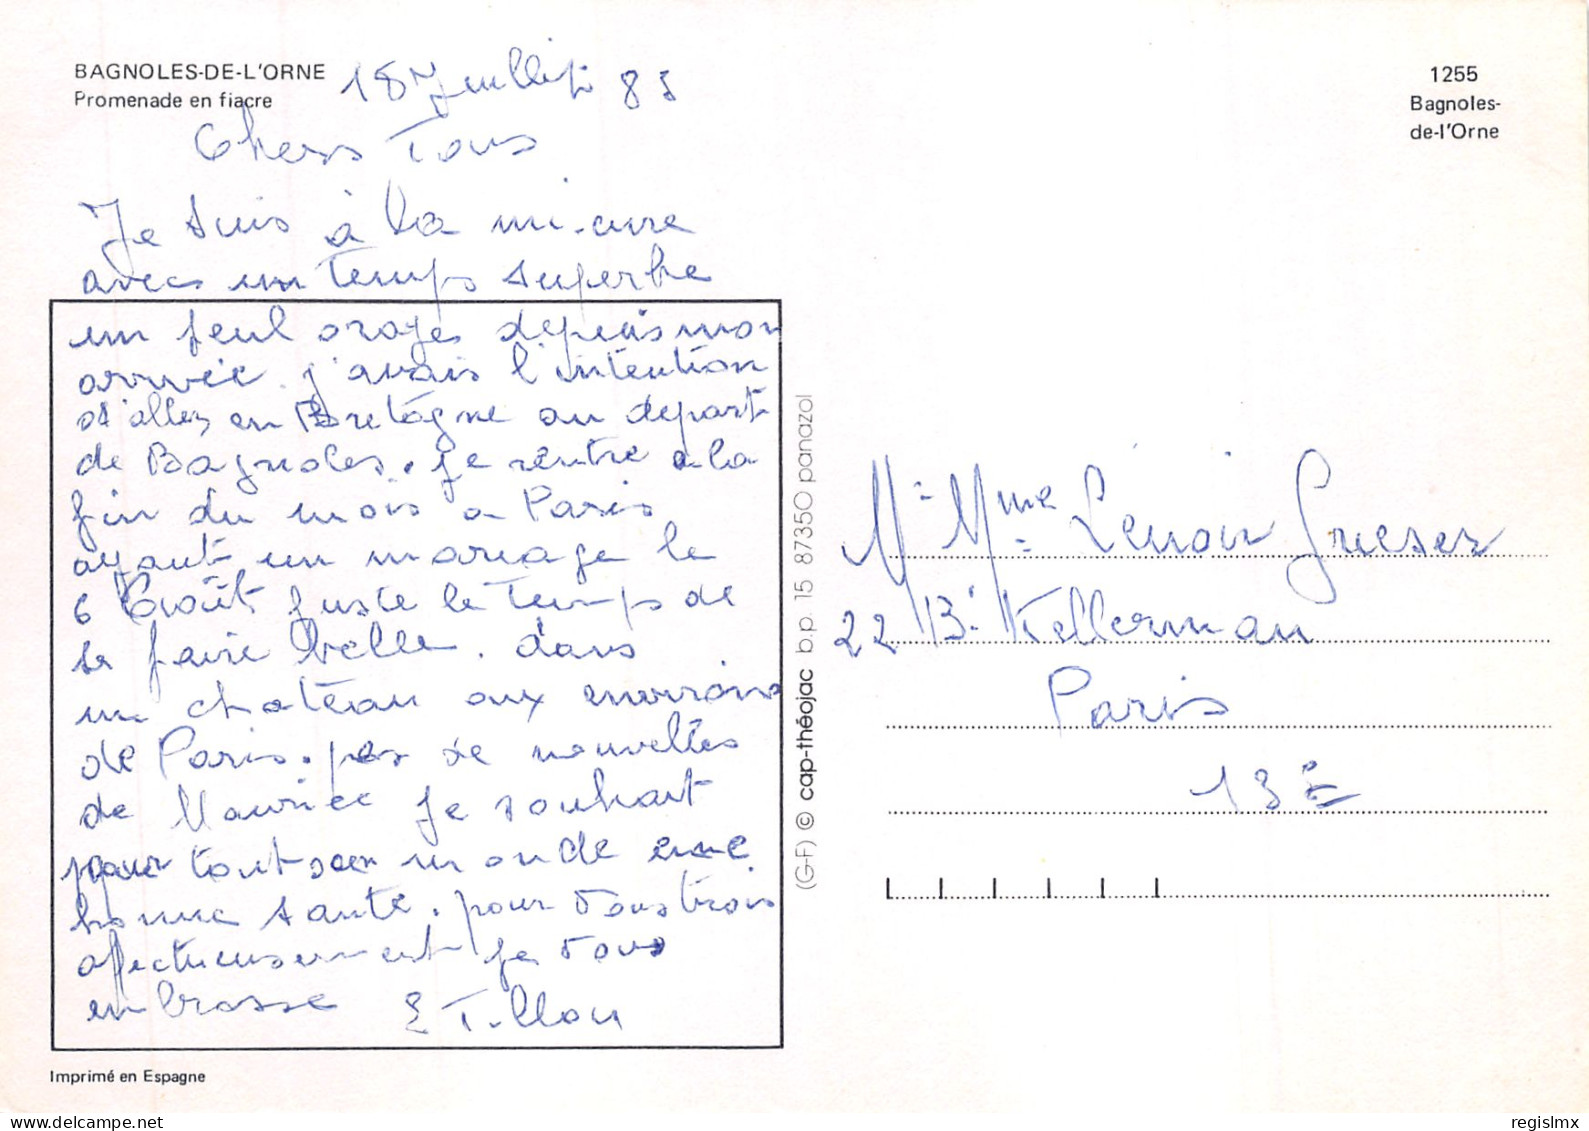 BAGNOLES-DE-L'ORNE
Promenade en fiacre
18 Juillet 85
Chers Tous
Je suis à la mi-cure
avec un temps superbe
un seul orage depuis mon
arrivée. j'avais l'intention
d'aller en Bretagne au départ
de Bagnoles. je rentre a la
fin du mois a Paris
ayant un mariage le
6 Août juste le temps de
se faire belle. dans
un chateau aux environs
de Paris. pas de nouvelles
de Maurice je souhait
pour tout son monde une
bonne santé. pour vous trois
affectueusement je vous
embrasse E Tillon
Imprimé en Espagne
(G-F) © cap-théojac b.p. 15 87350 panazol
1255
Bagnoles-
de-l'Orne
M. Mme Lenoir Grieser
22 Bd Kellerman
Paris
13E
regislmx